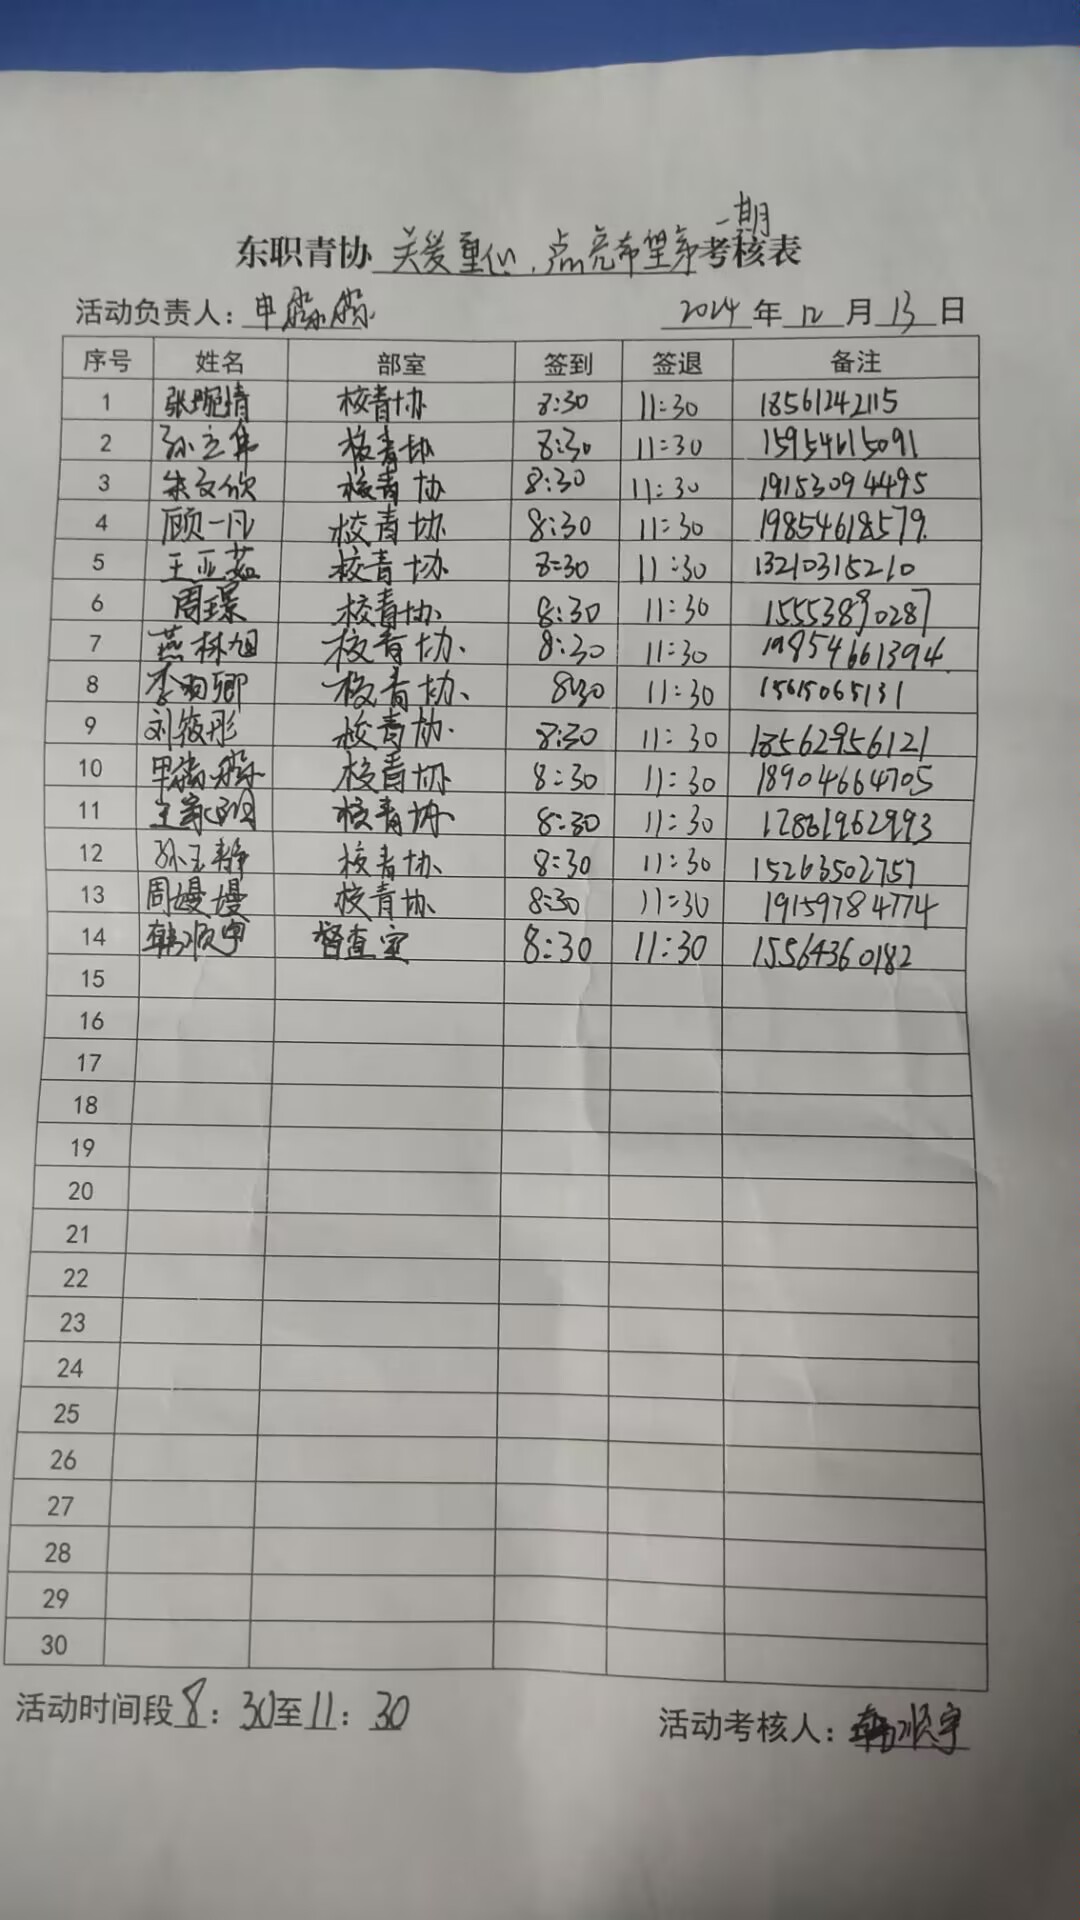 一期
东职青协 关爱童心,点亮希望第 考核表
活动负责人: 申 2024 年 12 月 13 日
序号 姓名 部室 签到 签退 备注
1 张婉情 校青协 8:30 11:30 18561242115
2 孙立伟 校青协 8:30 11:30 15954615091
3 朱文欣 校青协 8:30 11:30 19153094495
4 顾一凡 校青协 8:30 11:30 19854618579
5 王亚茹 校青协 8:30 11:30 13210315210
6 周璟 校青协 8:30 11:30 15553890287
7 燕林旭 校青协 8:30 11:30 19854661394
8 李 卿 校青协 8:30 11:30 15615065131
9 刘筱彤 校青协 8:30 11:30 18562956121
10 校青协 8:30 11:30 18904664705
11 王家 校青协 8:30 11:30 17861962993
12 孙玉静 校青协 8:30 11:30 15263502757
13 周嫚嫚 校青协 8:30 11:30 19159784774
14 韩顺宇 督查室 8:30 11:30 15564360182
15
16
17
18
19
20
21
22
23
24
25
26
27
28
29
30
活动时间段 8:30至11:30 活动考核人: 韩顺宇